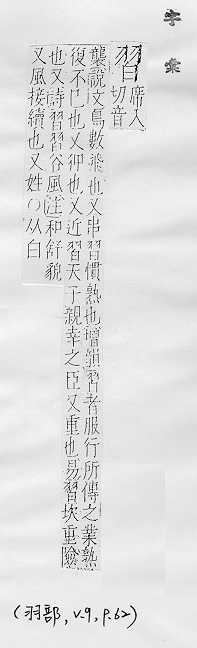 字彙
習席入切音
襲說文鳥數飛也又串習慣熟也增韻習者服行所傳之業熟
復不已也又狎也又近習天子親幸之臣又重也易習坎重險
也又詩習習谷風註和舒貌
又風接續也又姓○从白
(羽部, v.9, p.62)